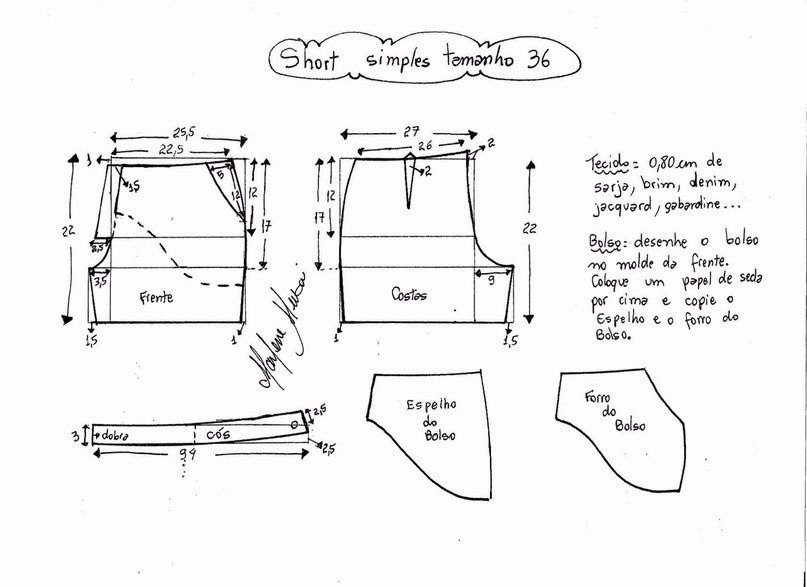 Short simples tamanho 36
25,5
22,5
1
1,5
5
12
12
17
22
2,5
3,5
Frente
1,5
1
27
26
2
2
12
17
22
Costas
9
1
1,5
Tecido= 0,80cm de
sarja, brim, denim,
jacquard, gabardine...
Bolso= desenhe o bolso
no molde da frente.
Coloque um papel de seda
por cima e copie o
Espelho e o forro do
Bolso.
3
dobra
cós
2,5
2,5
94
Espelho
do
Bolso
Forro
do
Bolso